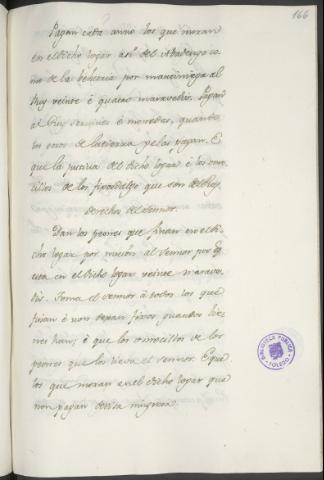 166
Pagan cada anno los que moran
en el dicho logar asi del Abadengo co
mo de la beheria por martiniega al
Rey veinte é quatro maravedis. Pagan
al Rey servicios é monedas, quando
los otros de la tierra ge las pagan. E
que la justicia del dicho logar é los
de los fijosdalgo que son del Rey.
Derechos del sennor.
Dan los peones que fincan en el di
cho logar por mincion al sennor que
en el dicho logar veinte marave
dis. Toma el sennor á todos los que
finan é non dexan fijos quantos bie
nes han, é que los omecillos de los
peones que los lieva el sennor. E que
los que moran en el dicho logar que
non pagan devisa ninguna.
BIBLIOTECA PÚBLICA
TOLEDO